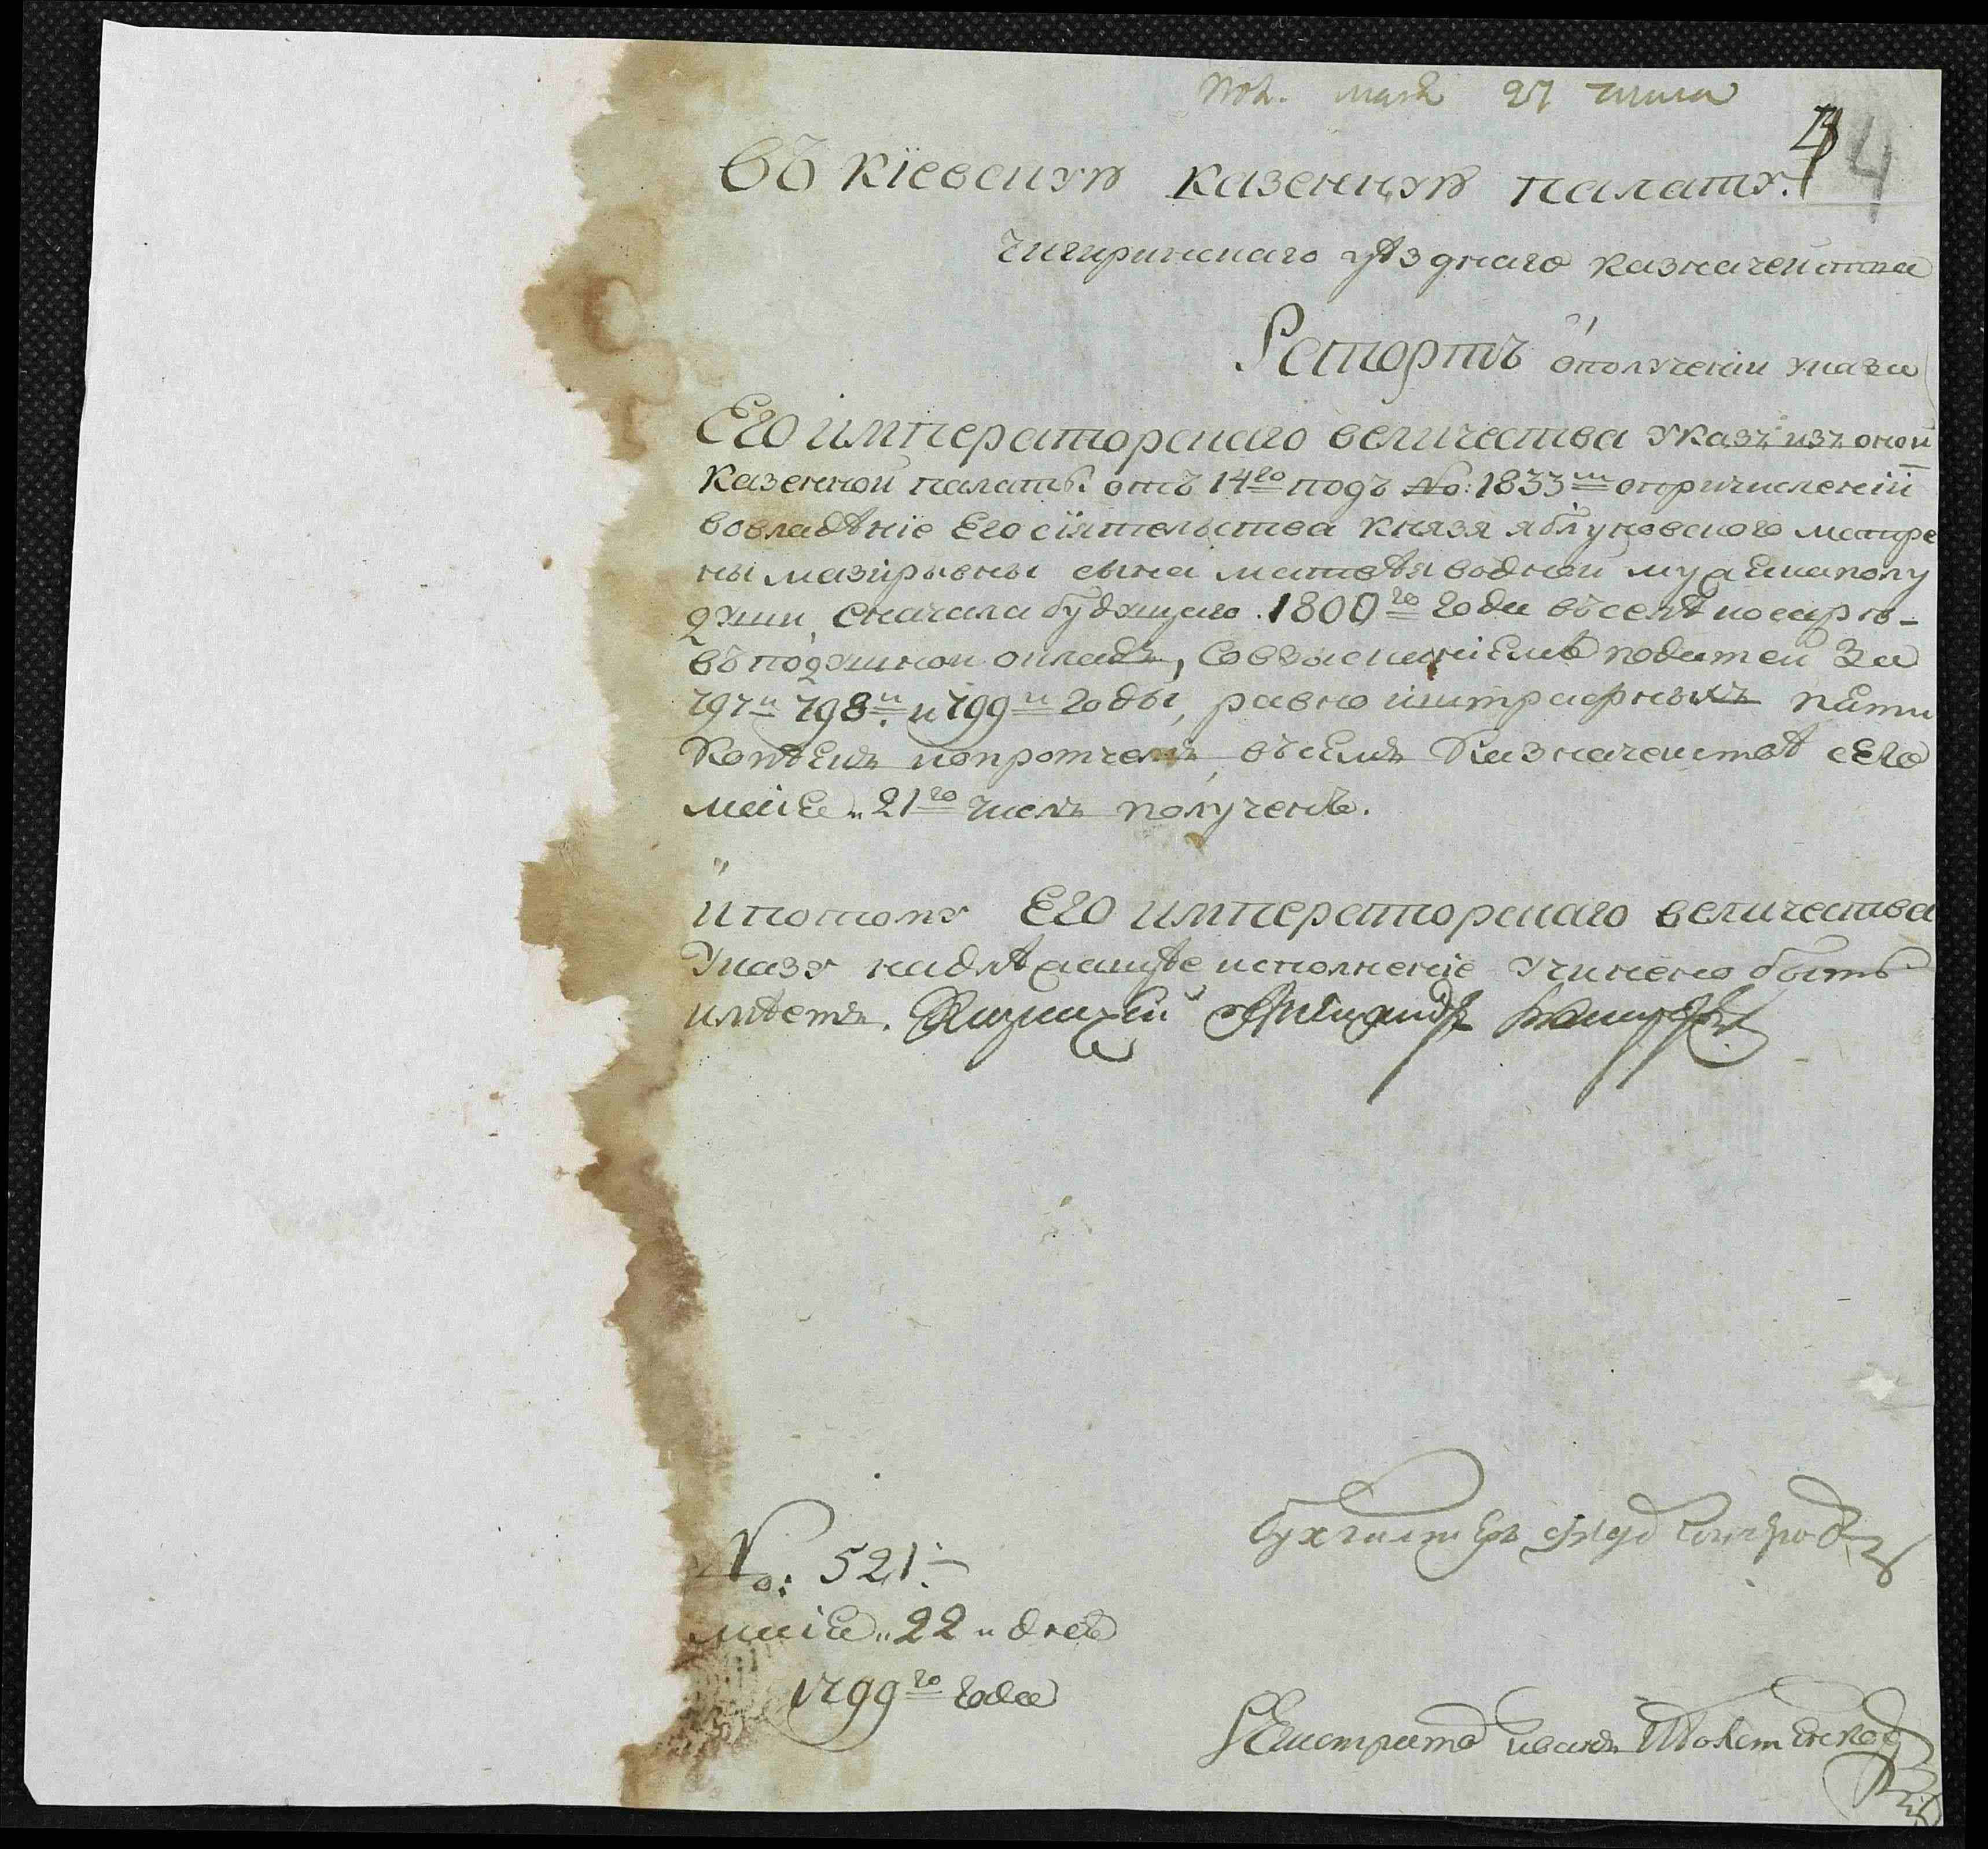 Пол. маія 27 числа
4
Въ Кіевскую казенную палату.
Чигиринскаго уѣзднаго казначейства
Репортъ ополученіи указа
Его императорскаго величества указъ изъ оной
казенной палаты отъ 14го подъ No: 1833м опричисленіи
вовладѣніе Его сіятельства князя яблуновского матре
ны мазирывны сына матвѣя водной мужеска полу
души, сначала будущаго 1800го года въ селѣ
въ подушной окладъ, Совзысканіемъ податей за
797й 798й и 799й годы, равно и штрафныхъ пяти
копѣекъ попротчемъ, въ семъ Казначействѣ сего
маіа „21го числъ полученъ.
и потому Его императорскаго величества
Указу надлѣжащѣе исполненіе учинено быть
имѣетъ. Казначей
No: 521
маіа „22„ дня
1799го года
бухгалтеръ
Регистраторъ иванъ